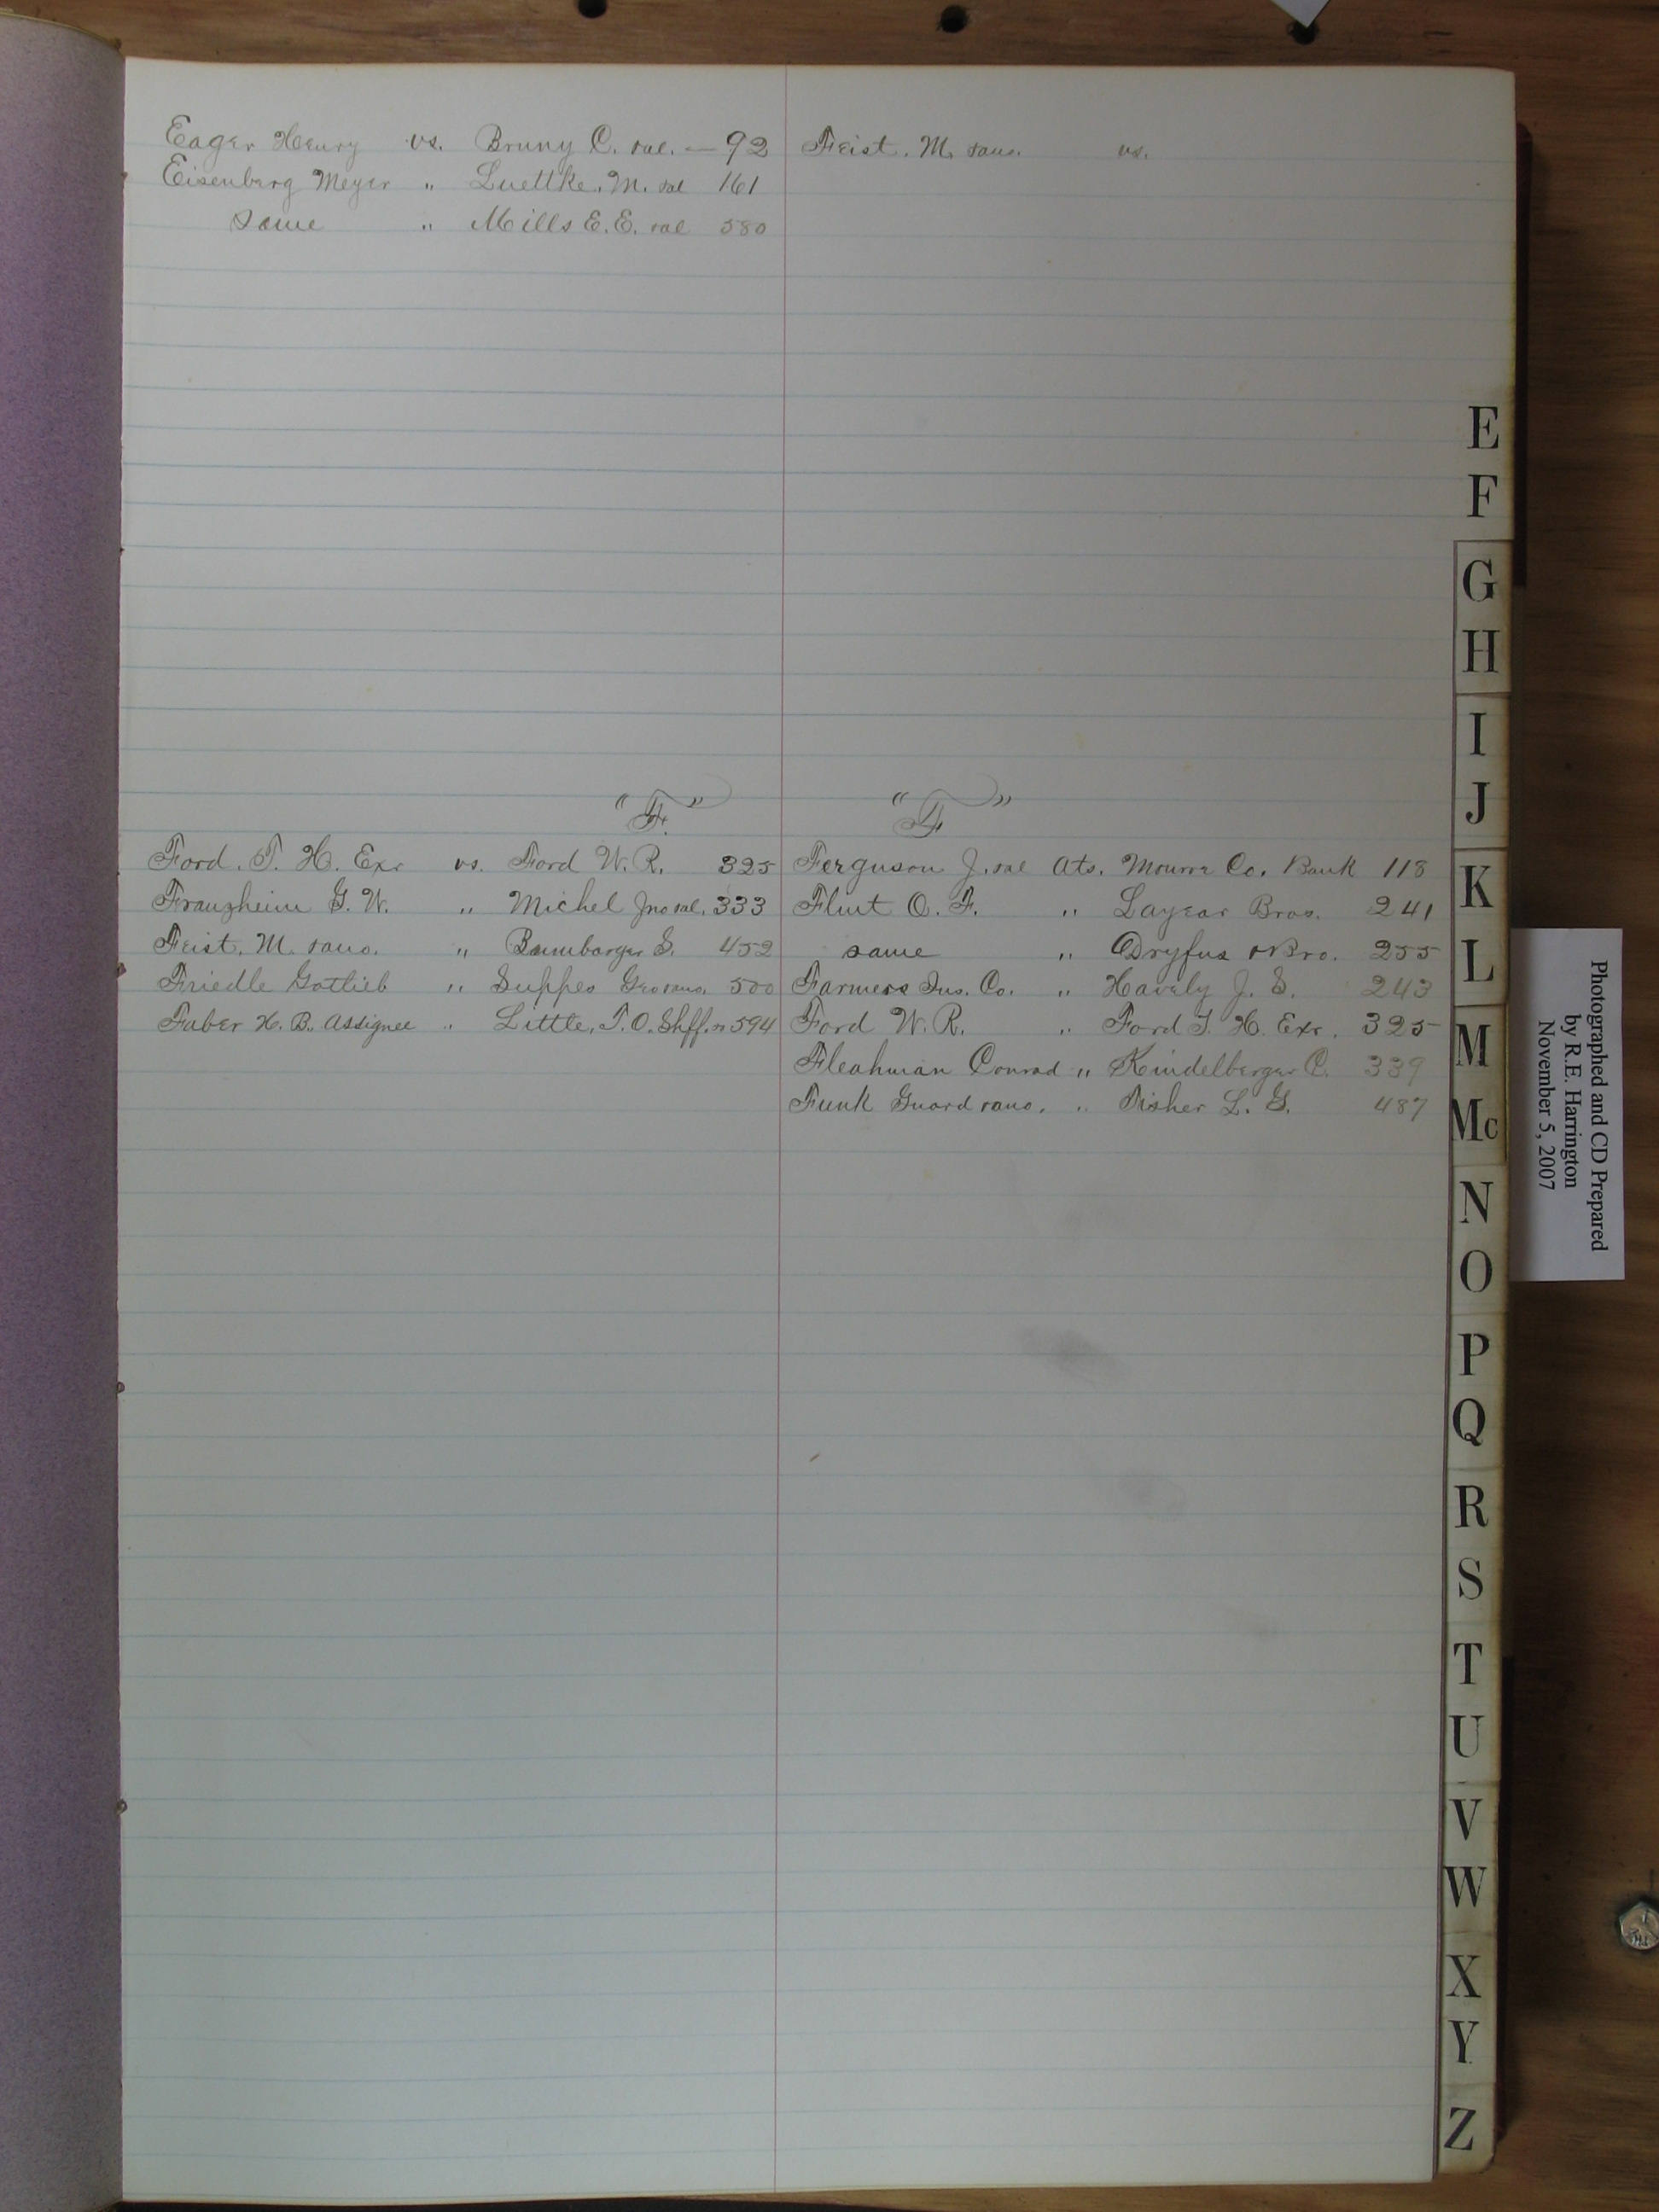 Eager Henry vs. Bruny C. et al. — 92
Eisenberg Meyer " Luettke, M. et al 161
same " Mills E. E. et al 580
Feist. M. vs.
"F."
Ford. T. H. Exr vs. Ford W. R. 325
Franzheim G. W. " Michel Jno et al. 333
Feist. M. " Bamberger S. 452
Friedle Gotlieb " Suppes Geo 500
Faber H. B. Assignee " Little, T. O. Shff. 594
"F"
Ferguson J. et al Ats. Monroe Co. Bank 118
Flint O. F. " Layear Bros. 241
same " Dryfus & Bro. 255
Farmers Ins. Co. " Havely J. S. 243
Ford W. R. " Ford T. H. Exr. 325
Fleahman Conrad " Kindelberger C. 339
Funk " Fisher L. G. 487
E
F
G
H
I
J
K
L
M
Mc
N
O
P
Q
R
S
T
U
V
W
X
Y
Z
Photographed and CD Prepared
by R.E. Harrington
November 5, 2007